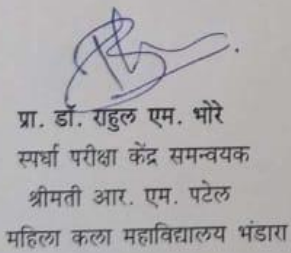 प्रा. डॉ. राहुल एम. भोरे
स्पर्धा परीक्षा केंद्र समन्वयक
श्रीमती आर. एम. पटेल
महिला कला महाविद्यालय भंडारा